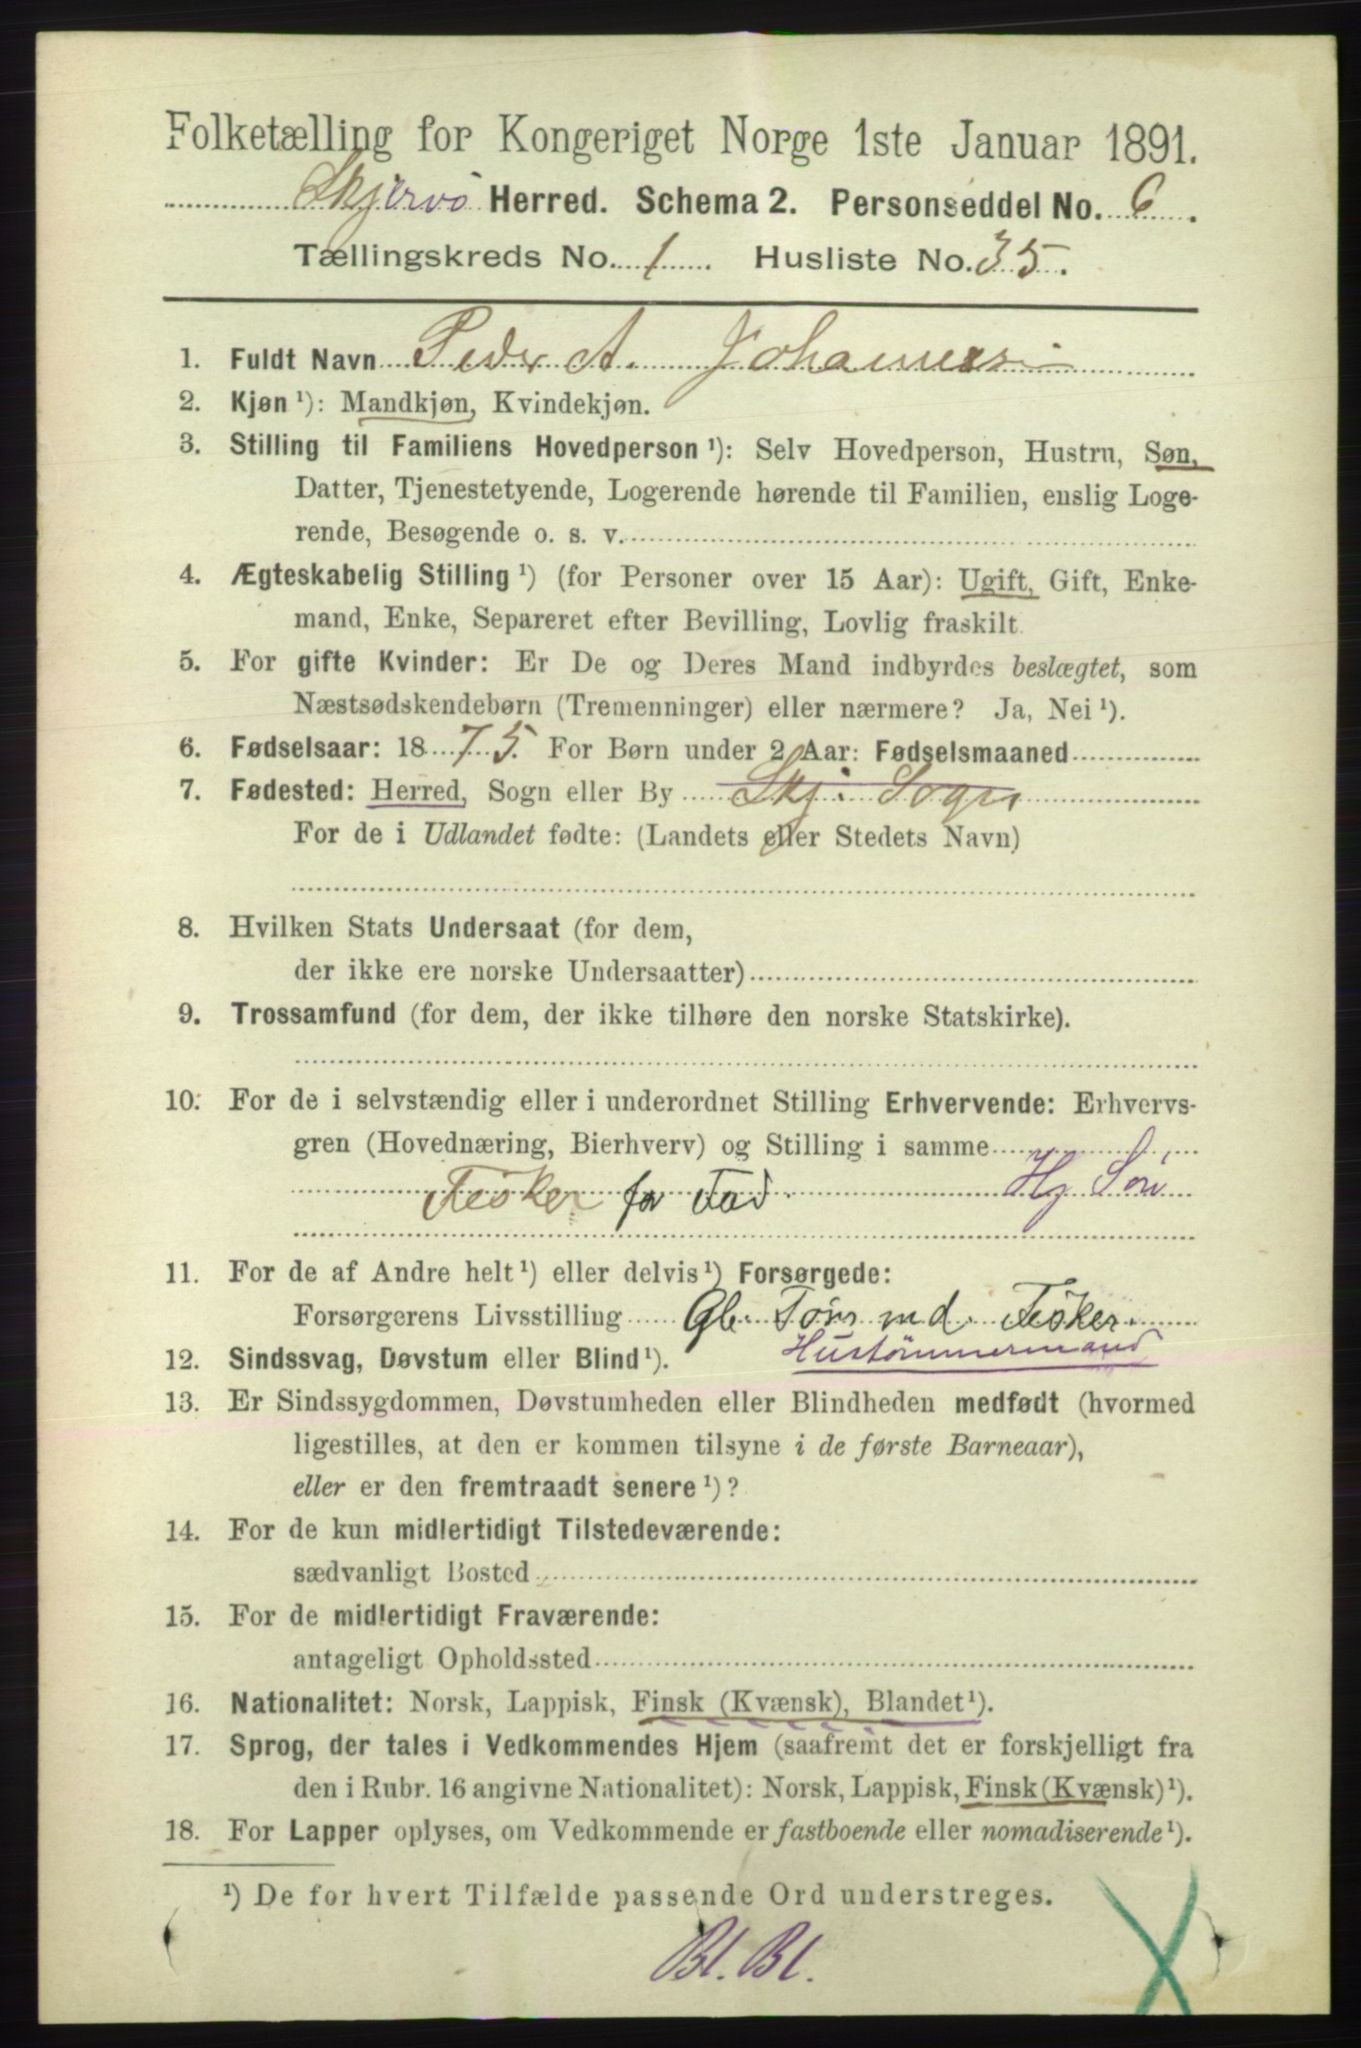 Folketælling for Kongeriget Norge 1ste Januar 1891.
Skjervö Herred. Schema 2. Personseddel No. 6.
Tællingskreds No. 1. Husliste No. 35.
1. Fuldt Navn Peder A. Johannes
2. Kjøn ¹): Mandkjøn, Kvindekjøn.
3. Stilling til Familiens Hovedperson ¹): Selv Hovedperson, Hustru, Søn,
Datter, Tjenestetyende, Logerende hørende til Familien, enslig Loge-
rende, Besøgende o. s. v.
4. Ægteskabelig Stilling ¹) (for Personer over 15 Aar): Ugift, Gift, Enke-
mand, Enke, Separeret efter Bevilling, Lovlig fraskilt.
5. For gifte Kvinder: Er De og Deres Mand indbyrdes beslægtet, som
Næstsødskendebørn (Tremenninger) eller nærmere? Ja, Nei ¹).
6. Fødselsaar: 1875. For Børn under 2 Aar: Fødselsmaaned
7. Fødested: Herred, Sogn eller By Skj. Sogn
For de i Udlandet fødte: (Landets eller Stedets Navn)
8. Hvilken Stats Undersaat (for dem,
der ikke ere norske Undersaatter)
9. Trossamfund (for dem, der ikke tilhøre den norske Statskirke).
10. For de i selvstændig eller i underordnet Stilling Erhvervende: Erhvervs-
gren (Hovednæring, Bierhverv) og Stilling i samme
Fisker for Fad. Hj Søn
11. For de af Andre helt ¹) eller delvis ¹) Forsørgede:
Forsørgerens Livsstilling Fisker.
12. Sindssvag, Døvstum eller Blind ¹). Hustømmermand
13. Er Sindssygdommen, Døvstumheden eller Blindheden medfødt (hvormed
ligestilles, at den er kommen tilsyne i de første Barneaar),
eller er den fremtraadt senere ¹)?
14. For de kun midlertidigt Tilstedeværende:
sædvanligt Bosted
15. For de midlertidigt Fraværende:
antageligt Opholdssted
16. Nationalitet: Norsk, Lappisk, Finsk (Kvænsk), Blandet ¹).
17. Sprog, der tales i Vedkommendes Hjem (saafremt det er forskjelligt fra
den i Rubr. 16 angivne Nationalitet): Norsk, Lappisk, Finsk (Kvænsk) ¹).
18. For Lapper oplyses, om Vedkommende er fastboende eller nomadiserende ¹).
¹) De for hvert Tilfælde passende Ord understreges.
Bl. Bl.